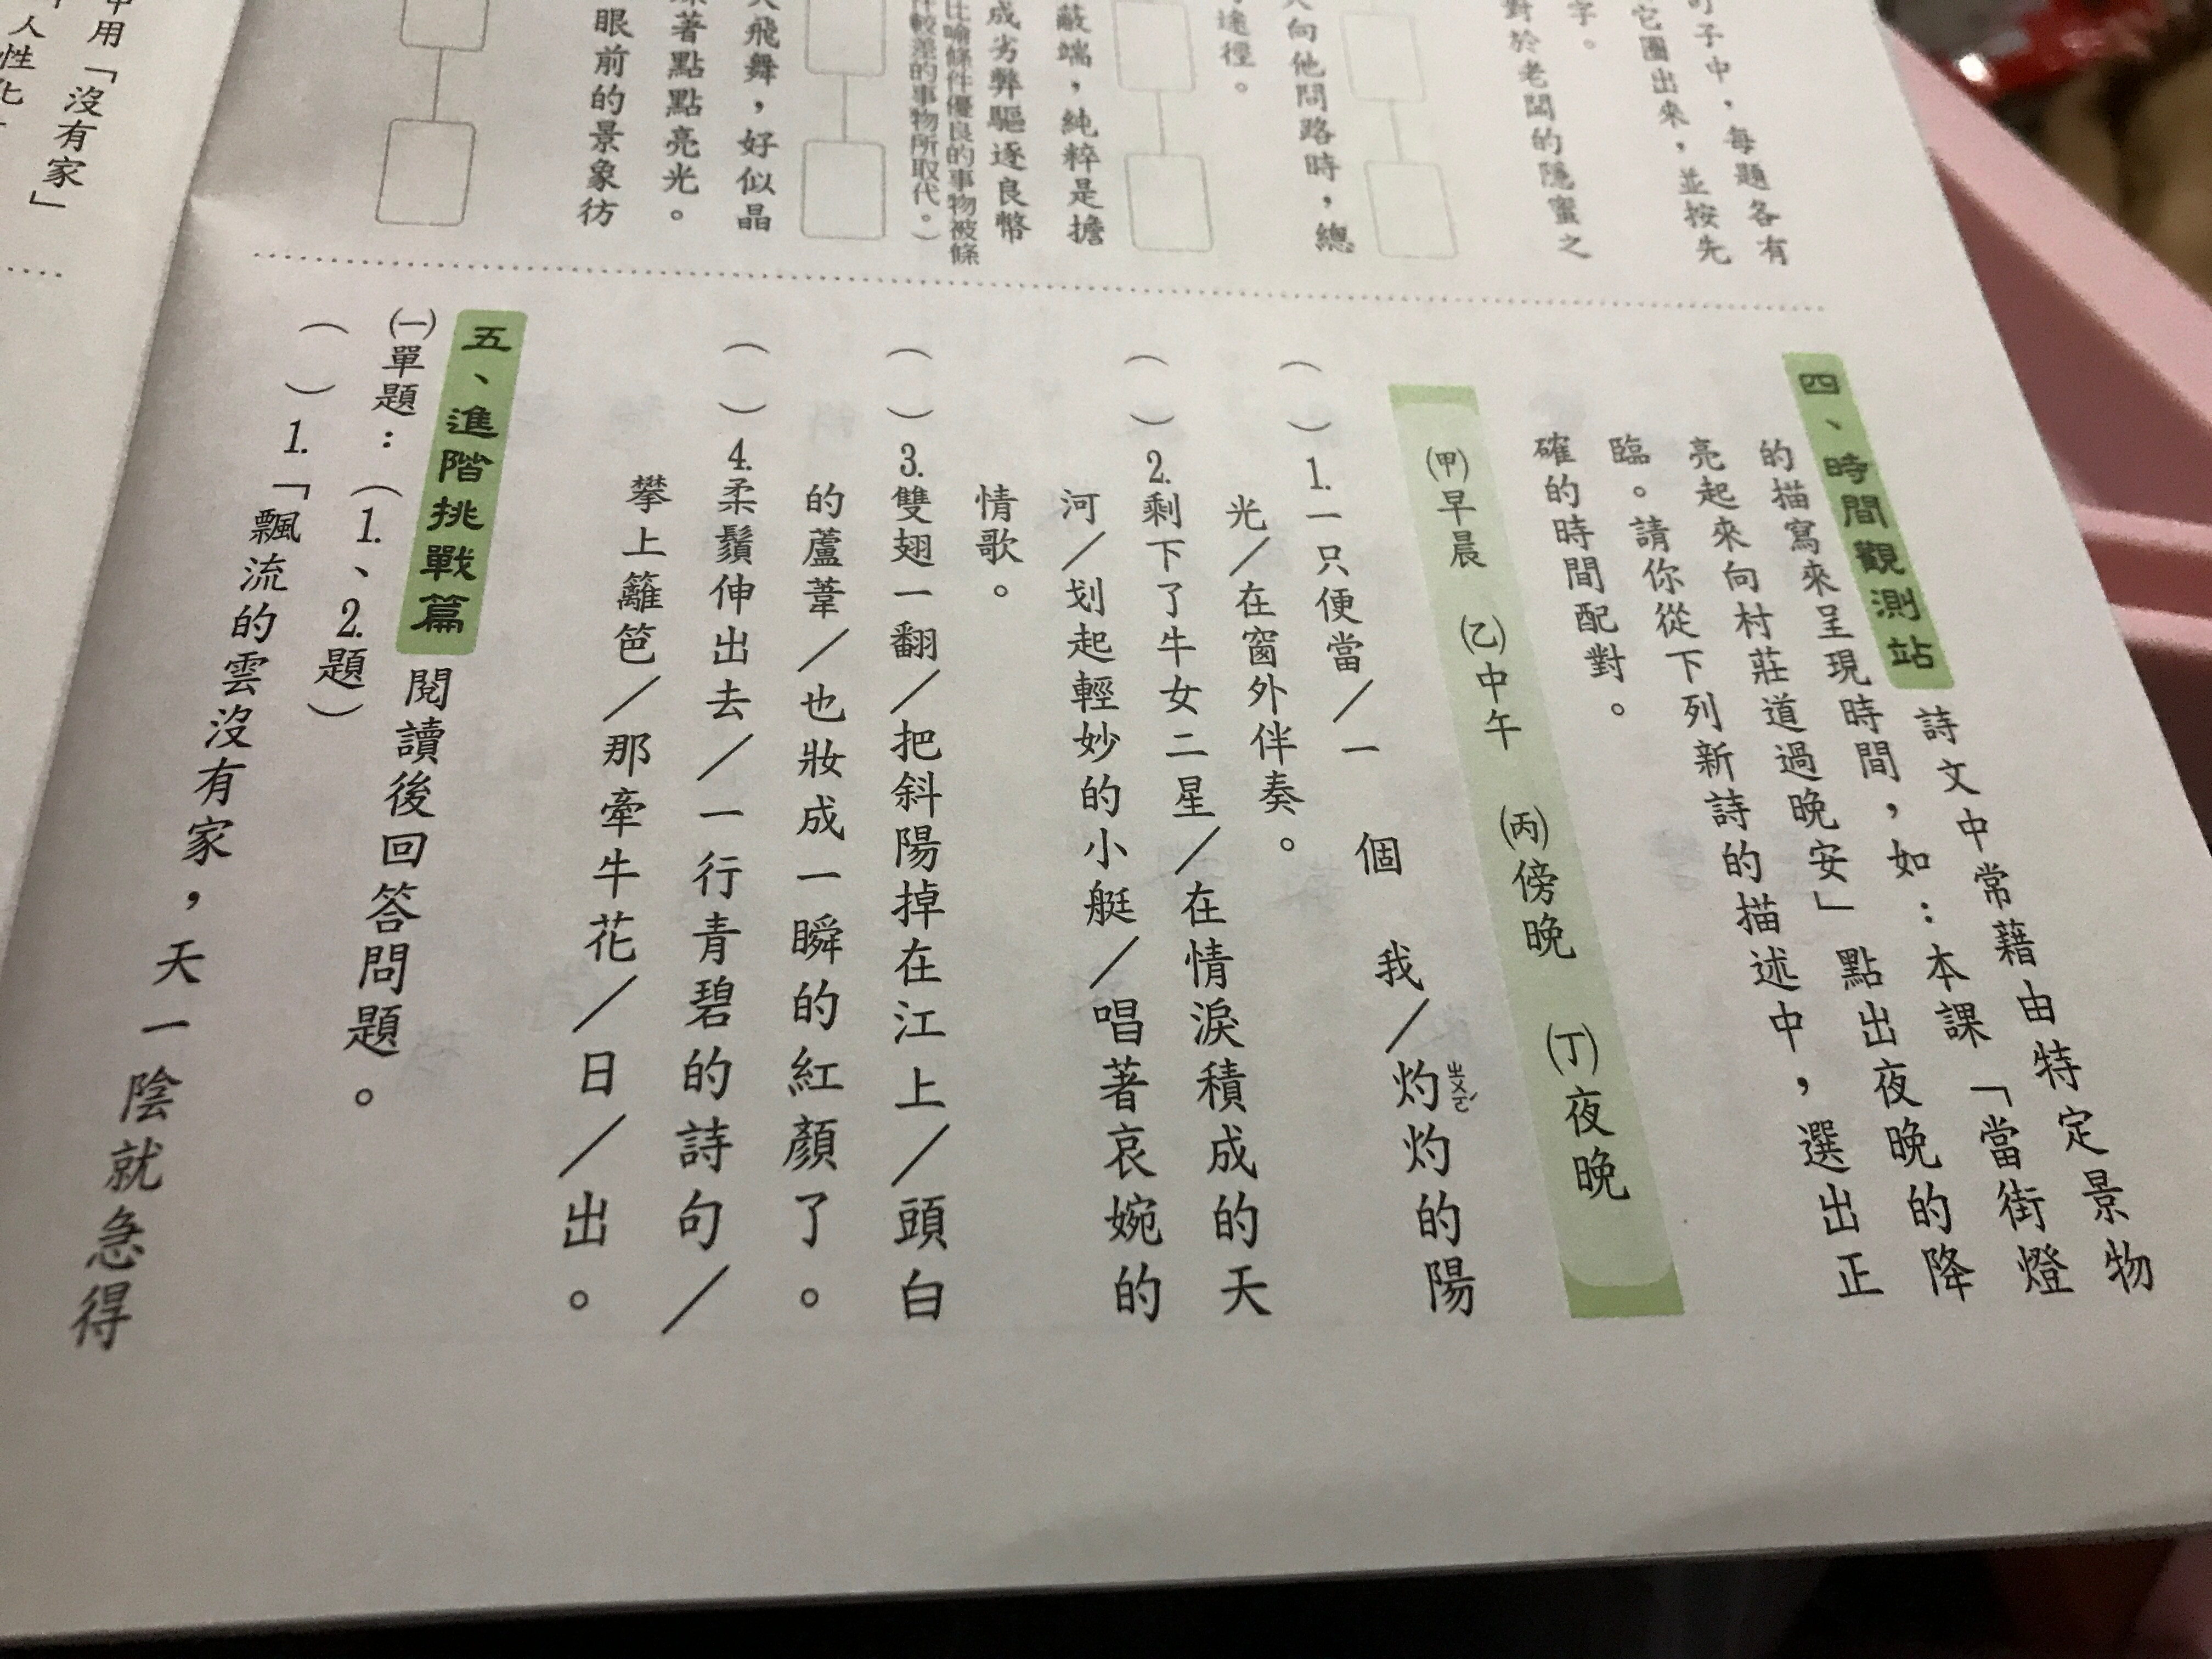 叮子中，每題各有
它圈出來，並按先
字。
對於老闆的隱蜜之
向他問路時，總
途徑。
蔽端，純粹是擔
成劣弊驅逐良幣
比喻條件優良的事物被條
件較差的事物所取代。）
飛舞，好似晶
著點點亮光。
眼前的景象彷
四、時間觀測站 詩文中常藉由特定景物
的描寫來呈現時間，如：本課「當街燈
亮起來向村莊道過晚安」點出夜晚的降
臨。請你從下列新詩的描述中，選出正
確的時間配對。
㈙早晨 ㈚中午 ㈛傍晚 ㈜夜晚
（ ）1.一只便當／一 個 我／灼ㄓㄨㄛˊ灼的陽
光／在窗外伴奏。
（ ）2.剩下了牛女二星／在情淚積成的天
河／划起輕妙的小艇／唱著哀婉的
情歌。
（ ）3.雙翅一翻／把斜陽掉在江上／頭白
的蘆葦／也妝成一瞬的紅顏了。
（ ）4.柔鬚伸出去／一行青碧的詩句／
攀上籬笆／那牽牛花／日／出。
五、進階挑戰篇 閱讀後回答問題。
㈠單題：（1.、2.題）
（ ）1.「飄流的雲沒有家，天一陰就急得
中用「沒有家」
人性化